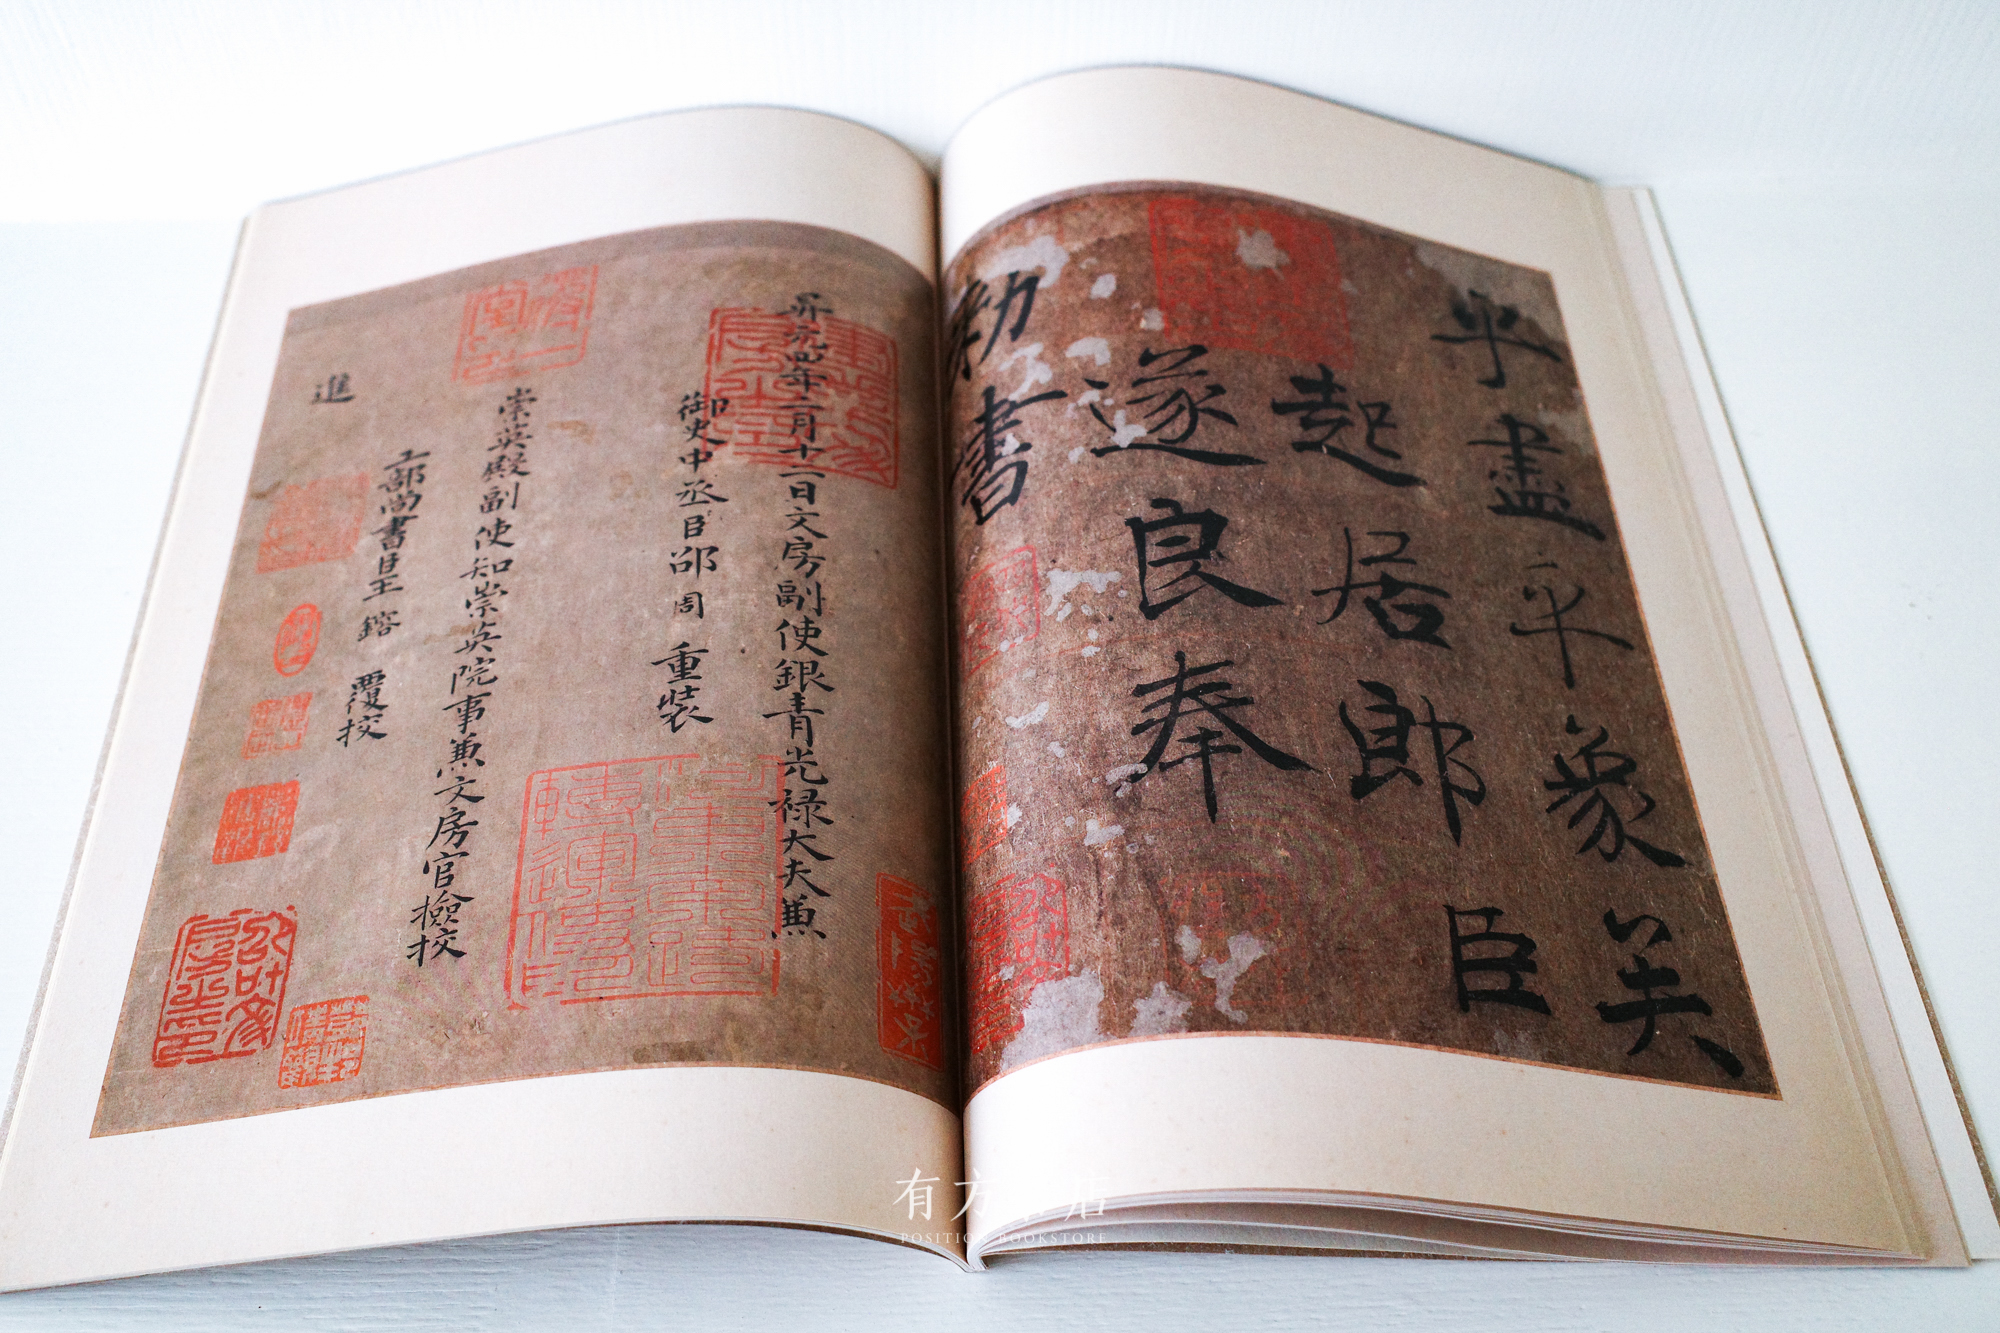 乎盡乎象矣
起居郎臣
遂良奉
勅書
昇元四年二月十二日文房副使銀青光祿大夫兼
御史中丞臣邵周 重裝
崇英殿副使知崇英院事兼文房官檢挍
工部尚書臣王鎔 覆挍
進
有方書店
POSITION BOOKSTORE